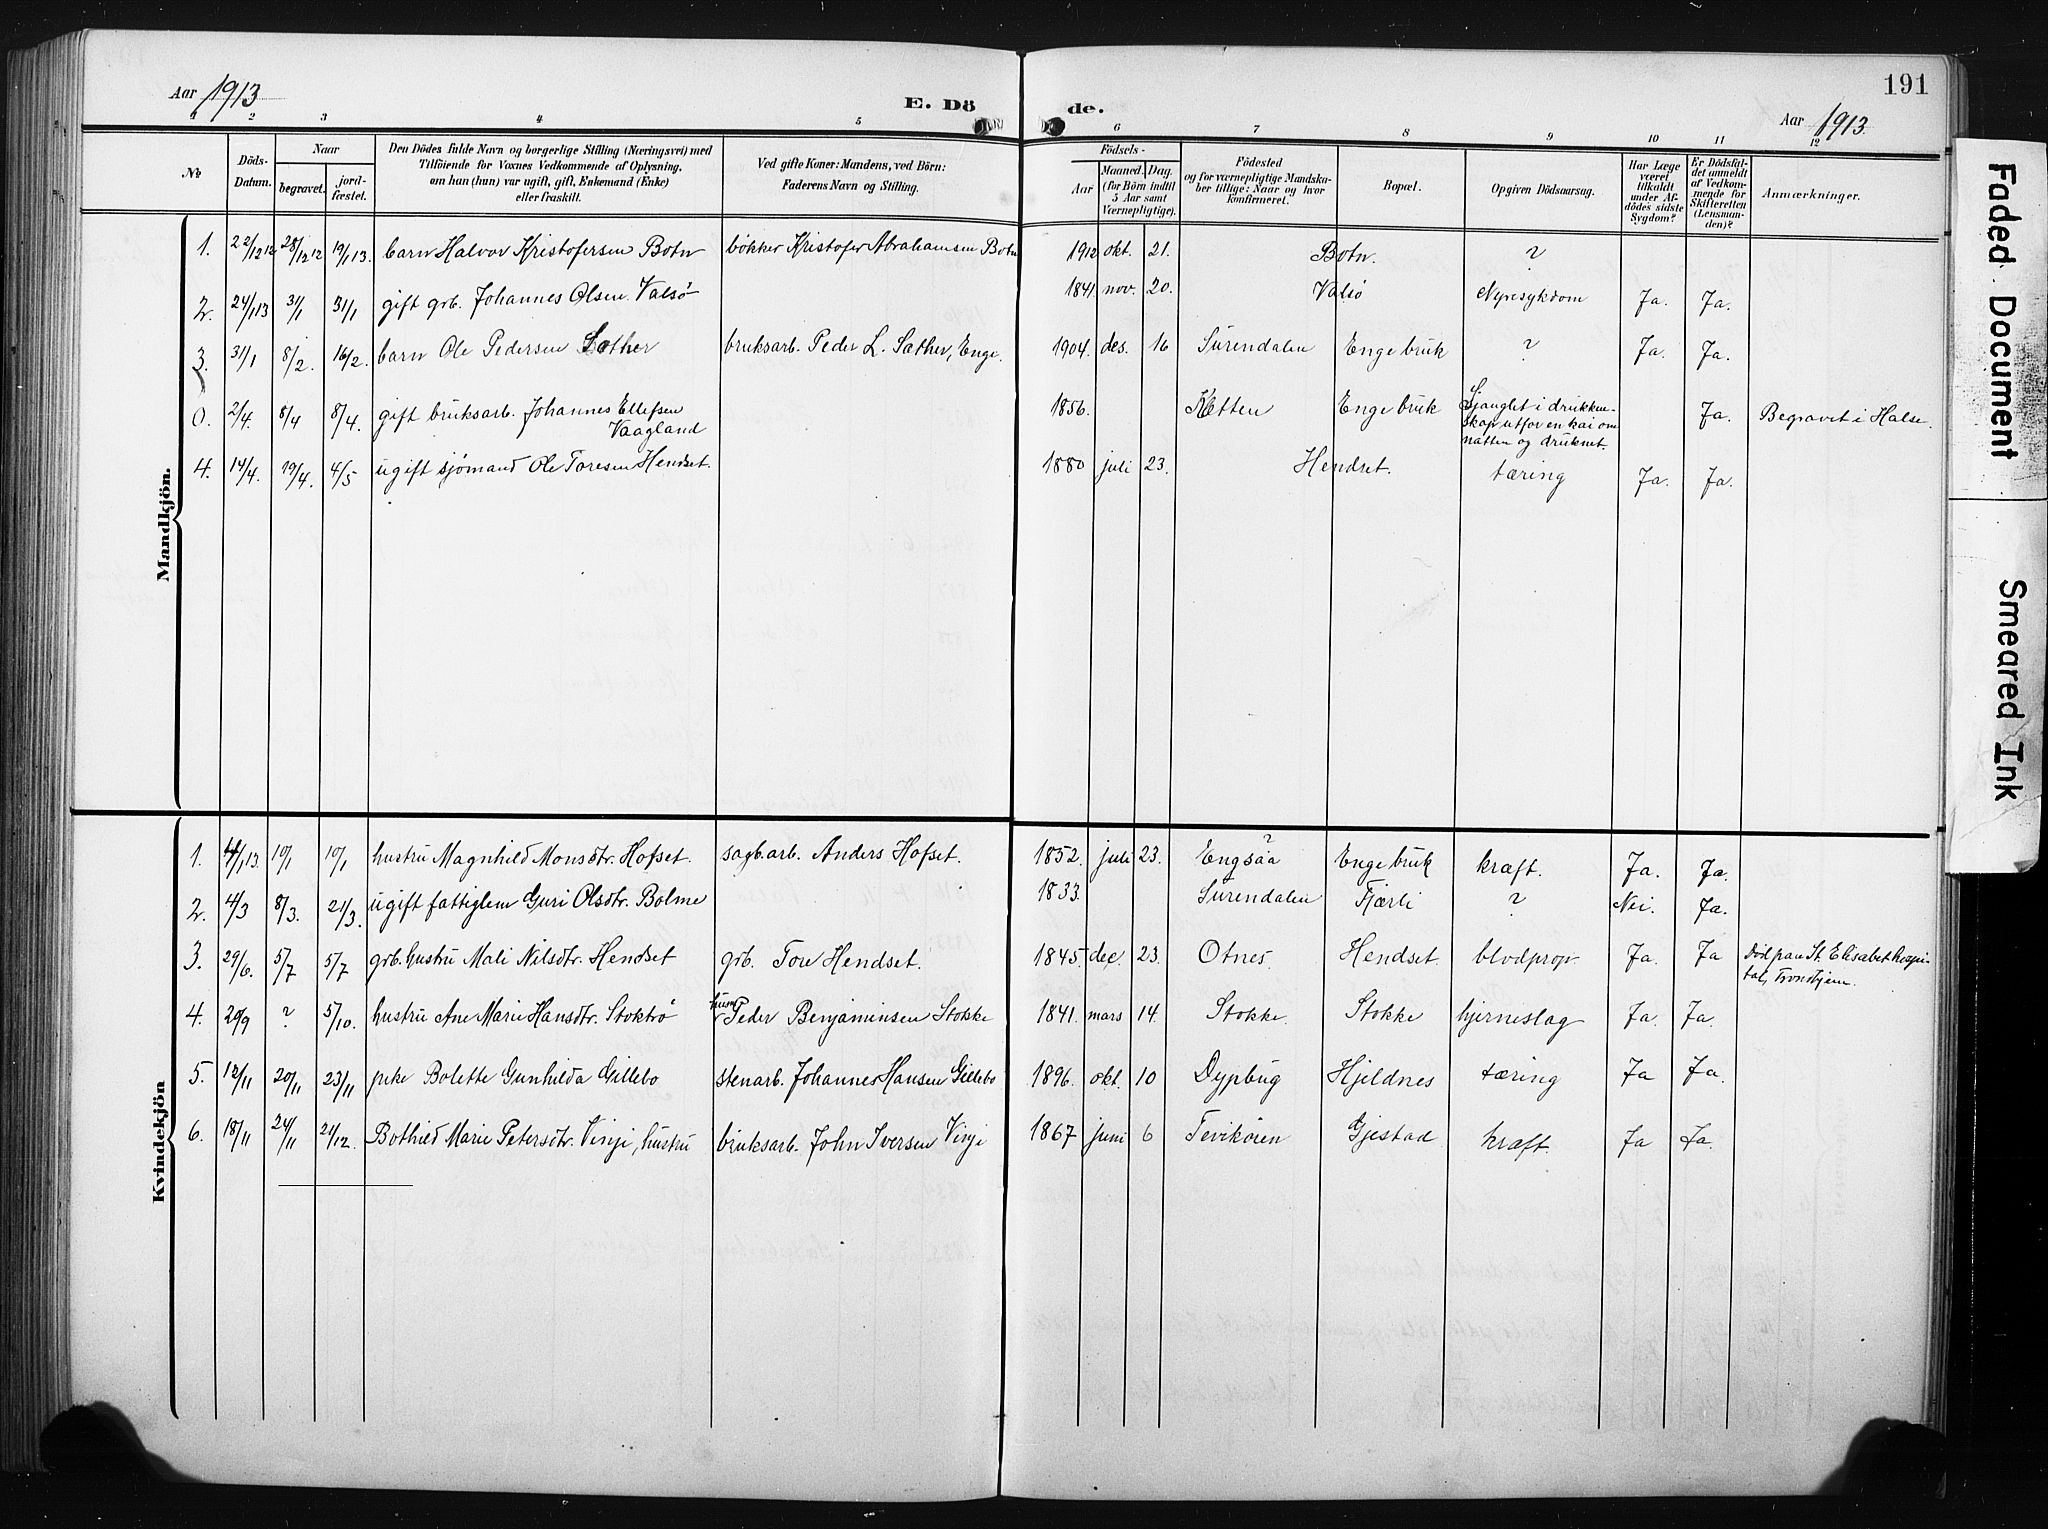 191
Aar 1913
E. Dö
de.
Aar 1913
1 2 3 4 5 6 7 8 9 10 11 12
No
Döds-Datum.
Naar
begravet.
jord-fæstet.
Den Dödes fulde Navn og borgerlige Stilling (Næringsvei) med
Tilföiende for Voxnes Vedkommende af Oplysning,
om han (hun) var ugift, gift, Enkemand (Enke)
eller fraskilt.
Ved gifte Koner: Mandens, ved Börn:
Faderens Navn og Stilling.
Födsels-
Aar
Maaned. Dag.
(for Börn indtil
5 Aar samt
Værnepligtige).
Födested
og for værnepligtige Mandska-
ber tillige: Naar og hvor
konfirmeret.
Bopæl.
Opgiven Dödsaarsag.
Har Læge
været
tilkaldt
under Af-
dödes sidste
Sygdom?
Er Dödsfal-
det anmeldt
af Vedkom-
mende for
Skifteretten
(Lensman-
den)?
Anmærkninger.
Mandkjön.
1. 22/12 12 28/12 12 19/1 13. barn Halvor Kristofersen Botn bökker Kristofer Abrahamsen Botn 1912 okt. 21. Botn. ?
2. 24/1 13 31/1 31/1 gift grb. Johannes Olsen Valsö 1841. nov. 20. Valsö Nyresykdom Ja. Ja.
3. 31/1 8/2. 16/2. barn Ole Pedersen Sæther bruksarb. Peder L. Sæther, Enge. 1904. des. 16 Surendalen Enge bruk ? Ja. Ja.
0. 2/4. 8/4 8/4. gift bruksarb. Johannes Ellefsen
Vaagland 1856. Enge bruk Sjanglet i drukken-
skap utfor en kai om
natten og druknet. Ja. Begravet i Halse.
4. 14/4. 19/4. 4/5 ugift sjömand Ole Toresen Hendset. 1880 juli 23. Hendset. tæring Ja. Ja.
Kvindekjön
1. 4/1 13. 10/1 10/1 hustru Magnhild Monsdtr. Hofset. sagb.arb. Anders Hofset. 1852. juli 23. Engsaa ? Enge bruk kræft. Ja. Ja.
2. 4/3 8/3. 21/3. ugift fattiglem Guri Olsdtr. Bolme 1833. Surendalen Fjærli ? Nei. Ja.
3. 29/6. 5/7 5/7 grb. hustru Mali Nilsdtr. Hendset grb. Tore Hendset. 1845. dec. 23. Otnes. Hendset. blodprop. Ja. Ja Död paa St. Elisabet hospi-
tal, Trondhjem.
4. 29/9 ? 5/10. hustru Ane Marie Hansdtr. Peder Benjaminsen Stokke 1841. mars 14. Stokke. Stokke hjerneslag Ja. Ja.
5. 12/11 20/11 23/11 pike Bolette Gunhilda Gillebo stenarb. Johannes Hansen Gillebo 1896. okt. 10 Dypbug Hjeldnes tæring Ja Ja.
6. 18/11 24/11 21/12. Bothild Marie Petersdtr. Vinje, hustru bruksarb. John Iversen Vinje 1867 juni 6 Tevikøien Gjestad kræft. Ja Ja.
Faded Document
Smeared Ink